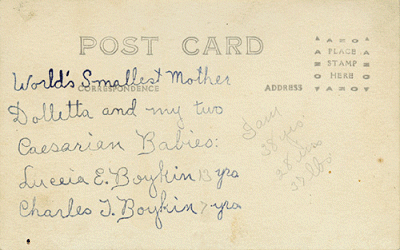 POST CARD
CORRESPONDENCE
ADDRESS
AZO
PLACE
STAMP
HERE
AZO
World's Smallest Mother
Dolletta and my two
Caesarian Babies:
Luccia E. Boykin 13 yrs
Charles T. Boykin 7 yrs
I am
38 yrs.
28 ins
33 lbs.